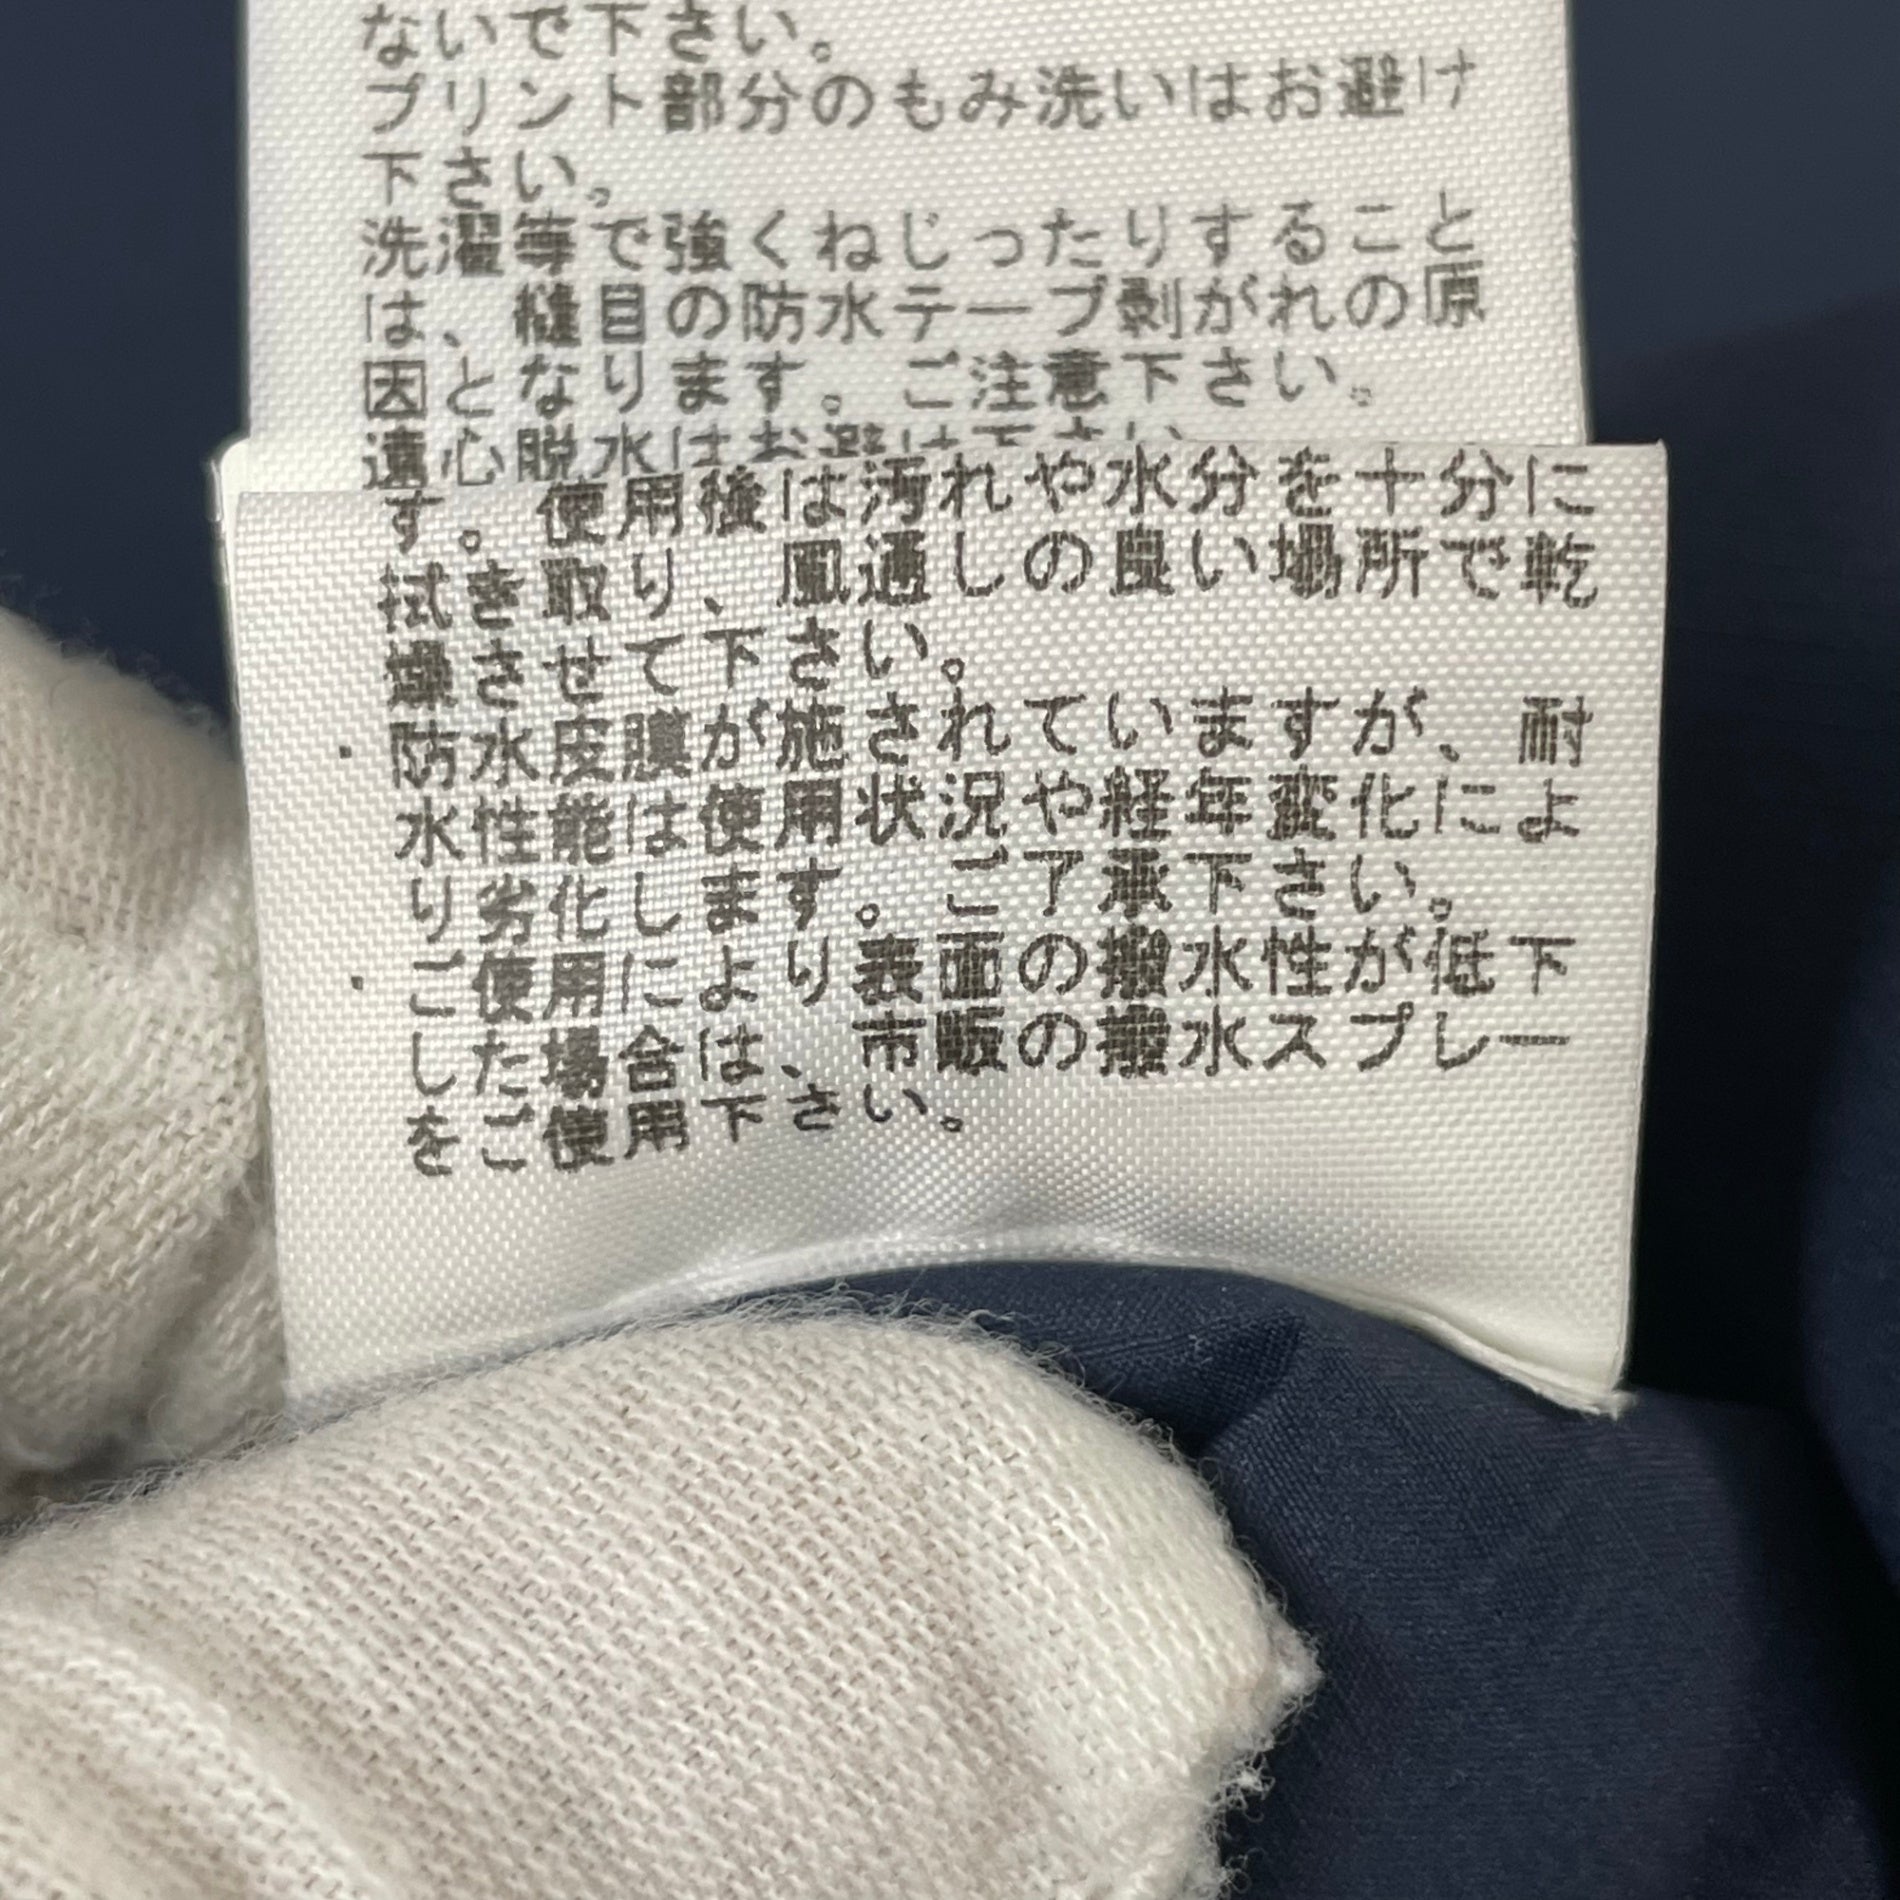 ないで下さい。
プリント部分のもみ洗いはお避け
下さい。
洗濯等で強くねじったりすること
は、縫目の防水テープ剥がれの原
因となります。ご注意下さい。
遠心脱水はお避け下さい
す。使用後は汚れや水分を十分に
拭き取り、風通しの良い場所で乾
燥させて下さい。
・防水皮膜が施されていますが、耐
水性能は使用状況や経年変化によ
り劣化します。ご了承下さい。
・ご使用により表面の撥水性が低下
した場合は、市販の撥水スプレー
をご使用下さい。